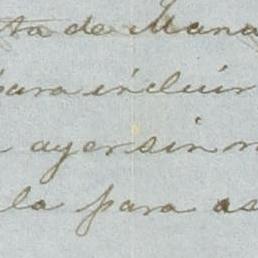 ta de Mana
para incluir
ayer sin n
la para as